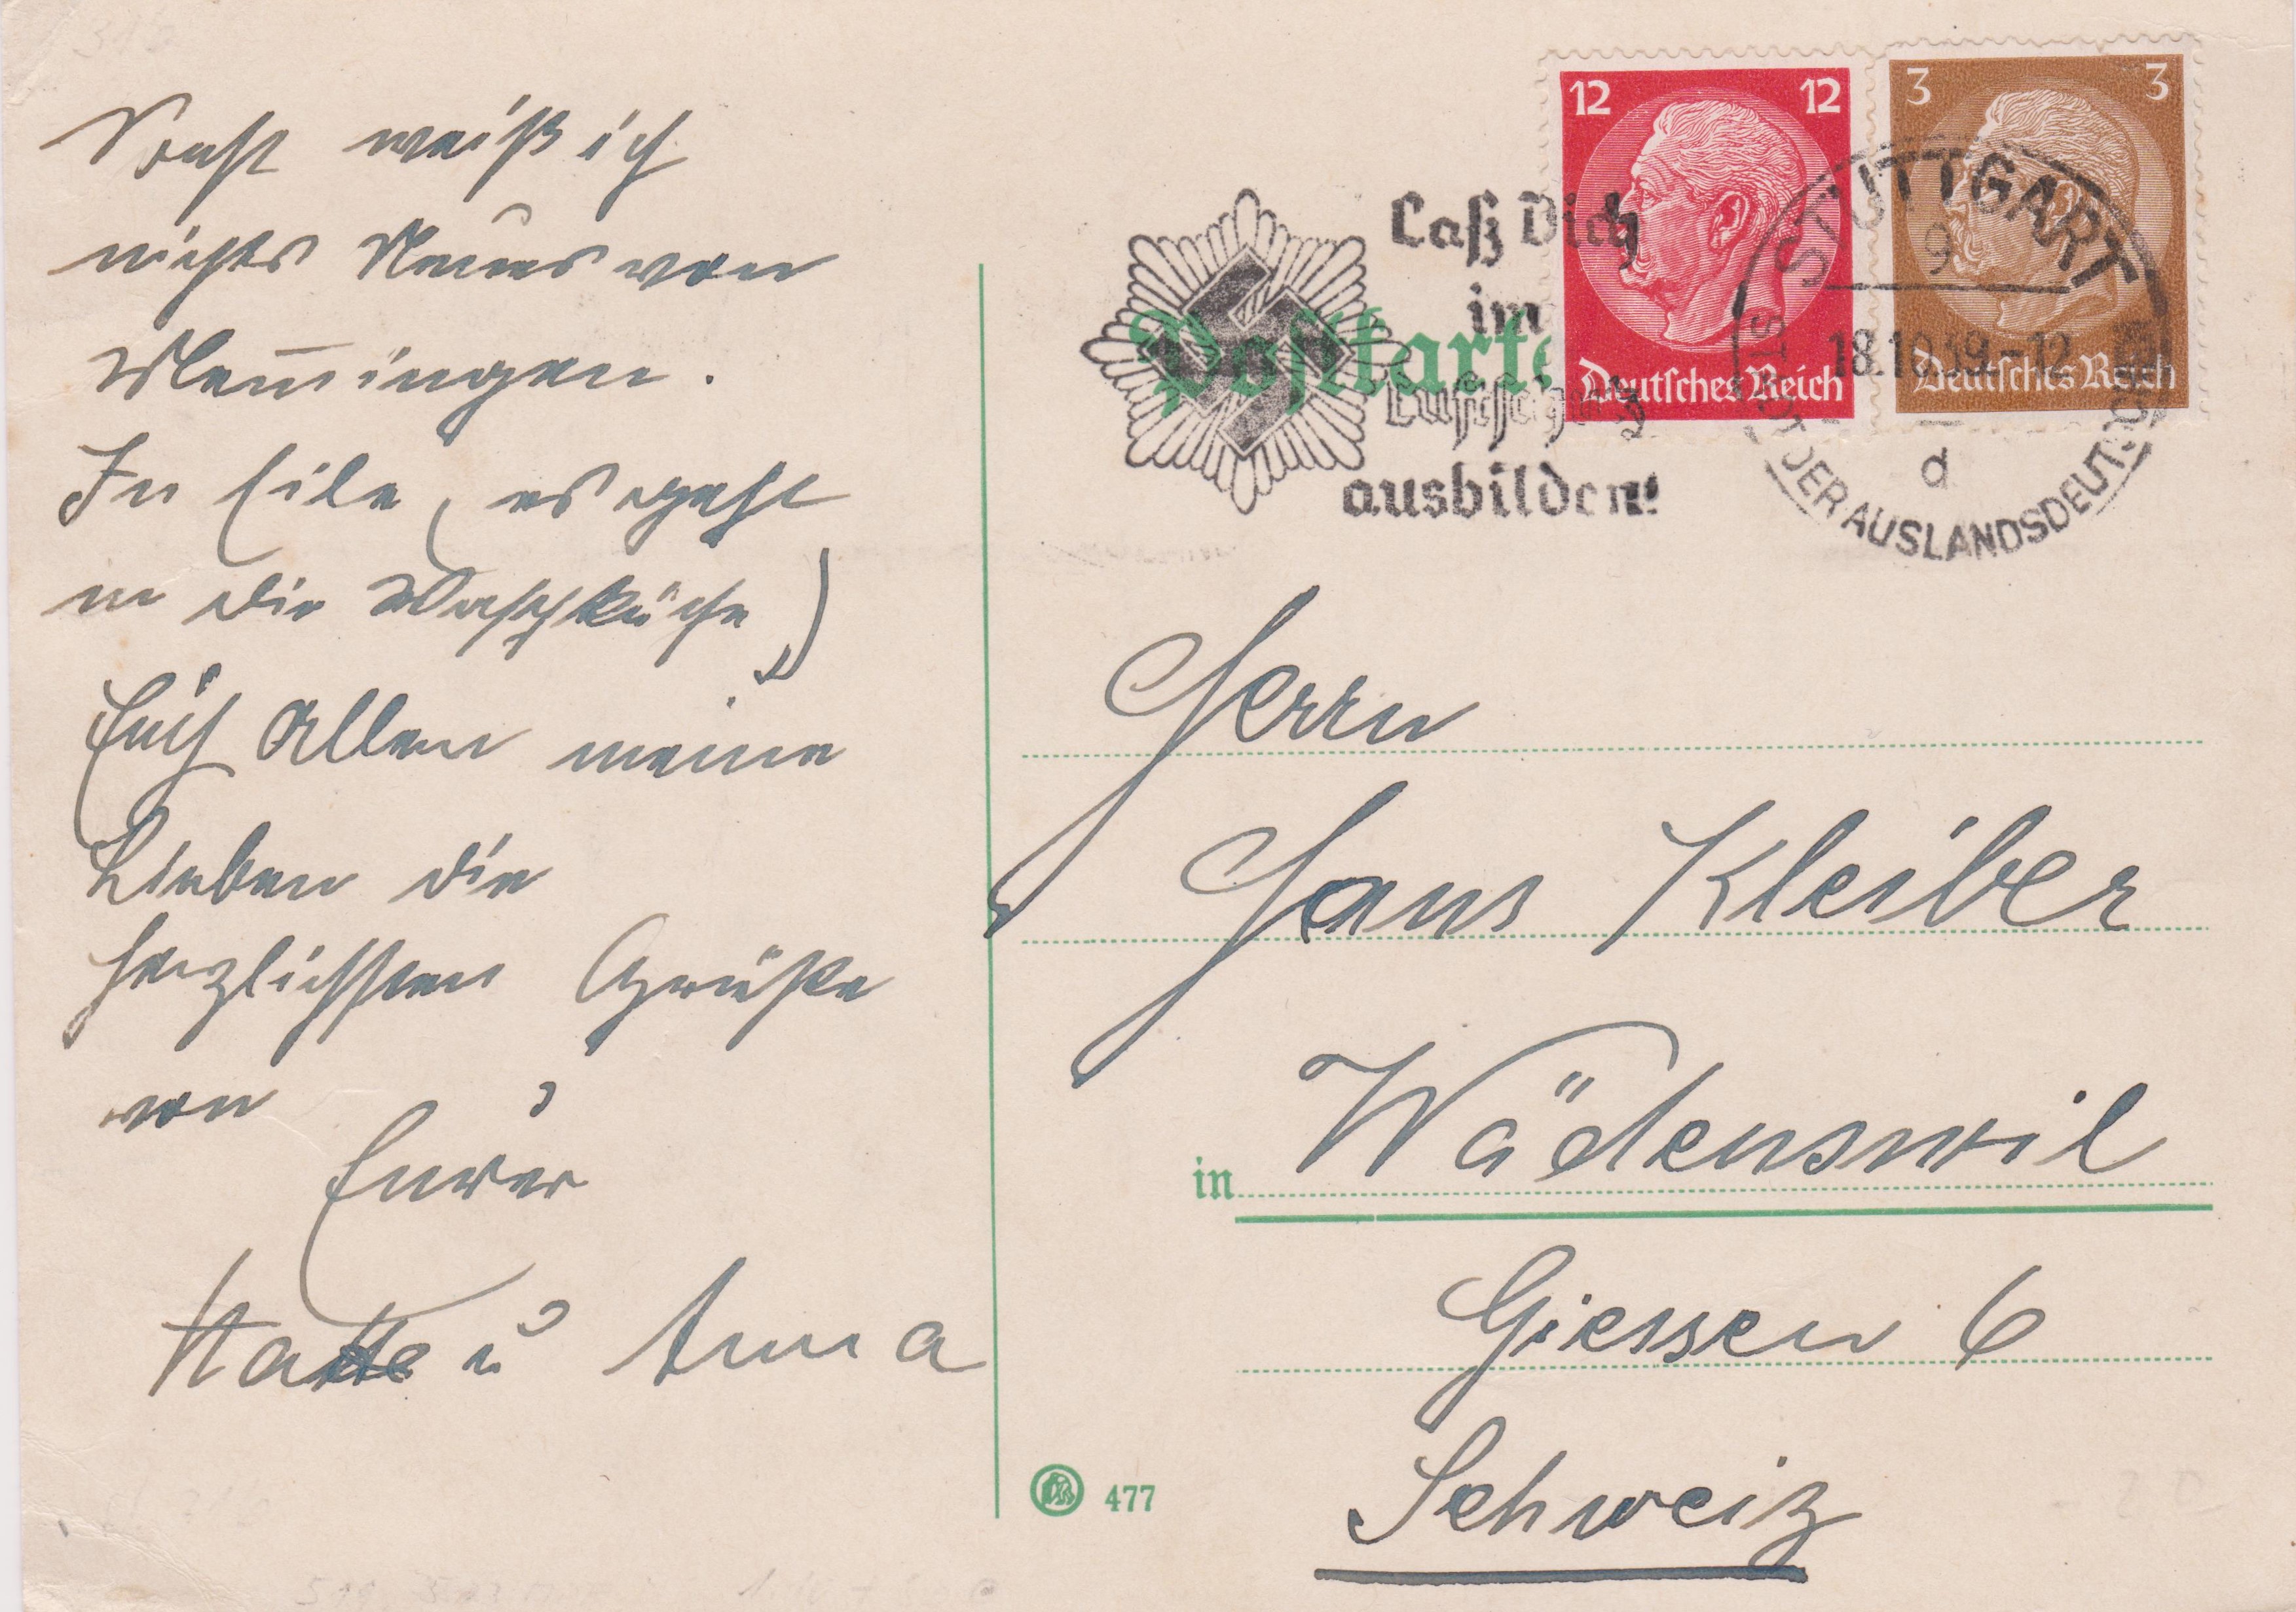 Sonst weiß ich
nichts Neues von
Memmingen.
In Eile (es geht
in die Waschküche)
Euch Allen meine
Lieben die
herzlichsten Grüße
von
Eurer
u Anna
12 12
Deutsches Reich
3 3
Deutsches Reich
Laß Dich
im
Luftschutz
ausbilden!
Postkarte
STUTTGART
9
18.10.39.-12
d
DER AUSLANDSDEUTSCHEN
Herrn
Hans Kleiber
in Wädenswil
Giessen 6
Schweiz
477